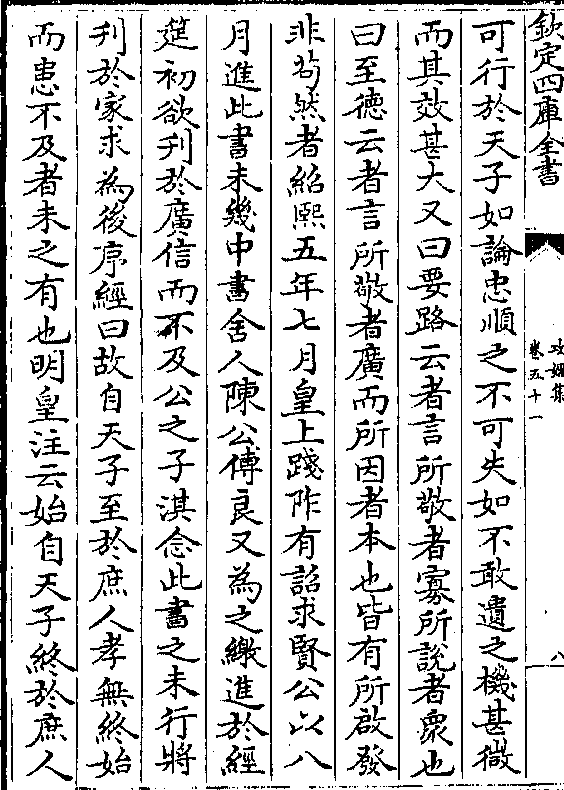 欽定四庫全書
攻媿集
卷五十一
八
可行於天子如論忠順之不可失如不敢遺之機甚微
而其效甚大又曰要路云者言所敬者寡所說者衆也
曰至德云者言所敬者廣而所因者本也皆有所啟發
非苟然者紹熙五年七月皇上踐阼有詔求賢公以八
月進此書未幾中書舍人陳公傅良又為之繳進於經
筵初欲刋於廣信而不及公之子淇念此書之未行將
刋於家求為後序經曰故自天子至於庶人孝無終始
而患不及者未之有也明皇注云始自天子終於庶人